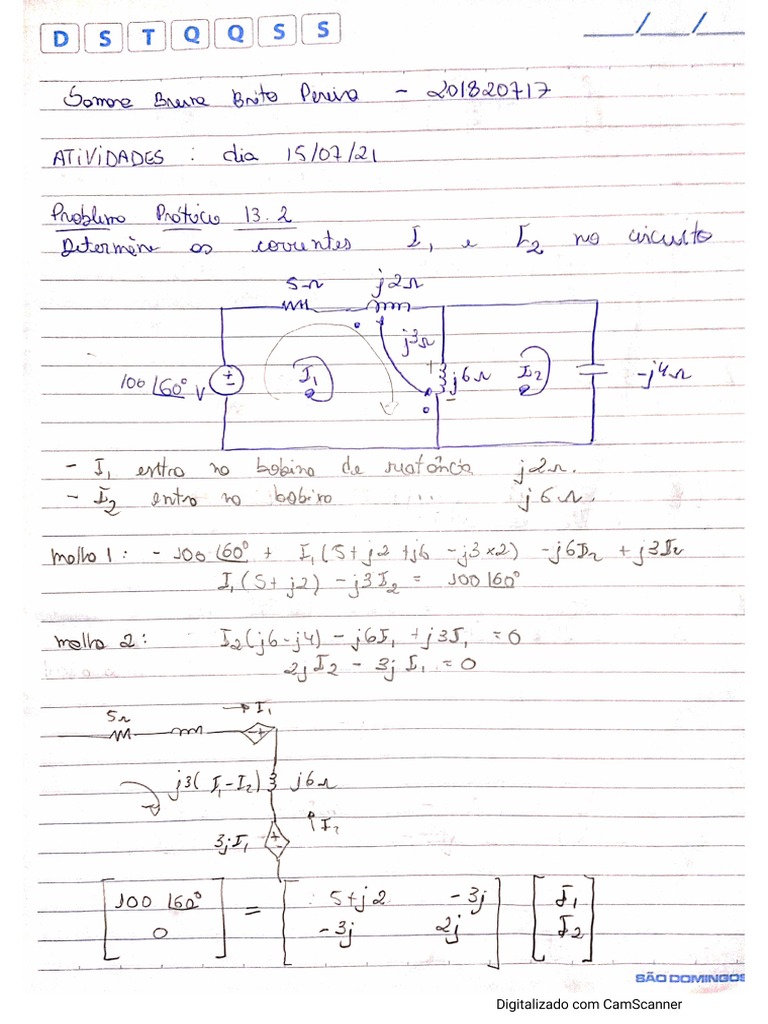 D S T Q Q S S
__/__/__
Brito Pereira - 201820717
ATIVIDADES : dia 15/07/21
Problema Prático 13.2
Determine as correntes I₁ e I₂ no circuito
5Ω j2Ω
j3Ω
100 ∠60° V ± I₁ + j6Ω - I₂ -j4Ω
- I₁ entra na bobina de reatância j2Ω.
- I₂ entra na bobina '' j6Ω.
malha 1: - 100 ∠60° + I₁(5+j2+j6 -j3×2) -j6I₂ + j3I₂
I₁(5+j2) -j3I₂ = 100∠60°
malha 2: I₂(j6-j4) - j6I₁ + j3I₁ = 0
2jI₂ - 3jI₁ = 0
→ I₁
5Ω
- +
j3(I₁-I₂) j6Ω
↑I₂
3jI₁ + -
[100 ∠60°] = [5+j2 -3j] [I₁]
[0] [-3j 2j] [I₂]
SÃO DOMINGOS
Digitalizado com CamScanner